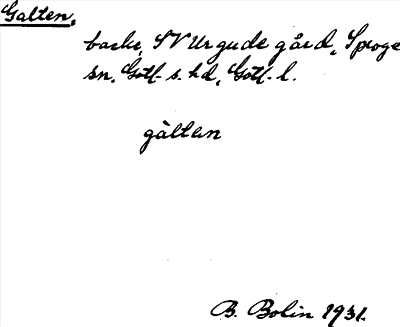 Galten,
backe, SV Urgude gård, Sproge
sn, Gotl. s. hd, Gotl. l.
gàltan
B. Bolin 1931.